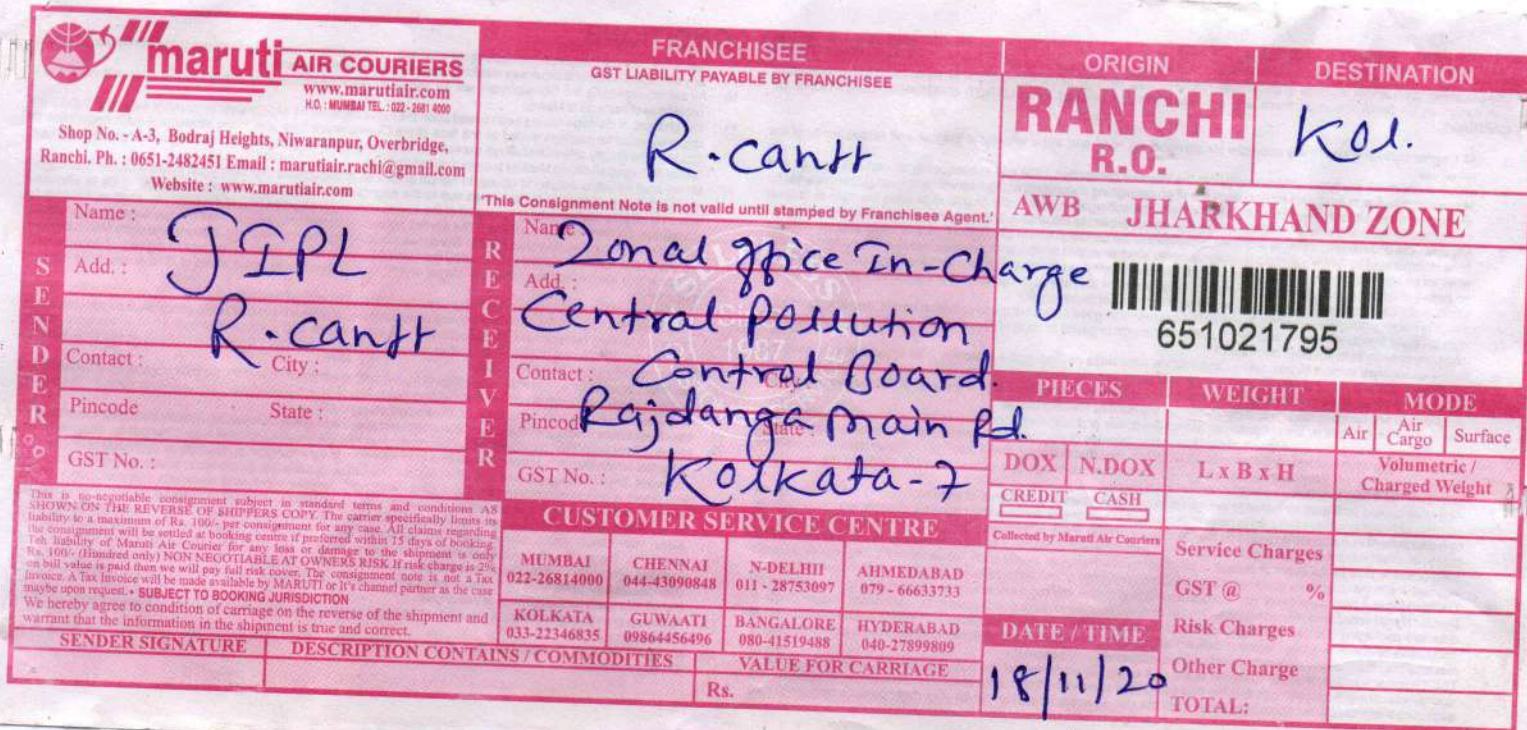 maruti AIR COURIERS
www.marutiair.com
H.O. : MUMBAI TEL. : 022 - 2681 4000
Shop No. - A-3, Bodraj Heights, Niwaranpur, Overbridge,
Ranchi. Ph. : 0651-2482451 Email : marutiair.rachi@gmail.com
Website : www.marutiair.com
FRANCHISEE
GST LIABILITY PAYABLE BY FRANCHISEE
R.cantt
'This Consignment Note is not valid until stamped by Franchisee Agent.'
ORIGIN
RANCHI
R.O.
DESTINATION
Kol.
AWB JHARKHAND ZONE
651021795
SENDER
Name :
JIPL
Add. :
R.cantt
Contact : City :
Pincode State :
GST No. :
RECEIVER
Name
Zonal office In-Charge
Add. :
Central Pollution
Contact : Control Board.
Pincode Rajdanga Main Rd.
State :
GST No. : Kolkata-7
PIECES WEIGHT MODE
Air Air Cargo Surface
DOX N.DOX L x B x H Volumetric / Charged Weight
CREDIT CASH
Collected by Maruti Air Couriers
Service Charges
GST @ %
Risk Charges
Other Charge
TOTAL:
DATE / TIME
18/11/20
This is no-negotiable consignment subject in standard terms and conditions AS
SHOWN ON THE REVERSE OF SHIPPERS COPY. The carrier specifically limits its
liability to a maximum of Rs. 100/- per consignment for any case. All claims regarding
the consignment will be settled at booking centre if preferred within 15 days of booking
Teh liability of Maruti Air Courier for any loss or damage to the shipment is only
Rs. 100/- (Hundred only) NON NEGOTIABLE AT OWNERS RISK If risk charge is 2%
on bill value is paid then we will pay full risk cover. The consignment note is not a Tax
Invoice. A Tax Invoice will be made available by MARUTI or It's channel partner as the case
maybe upon request. • SUBJECT TO BOOKING JURISDICTION
We hereby agree to condition of carriage on the reverse of the shipment and
warrant that the information in the shipment is true and correct.
CUSTOMER SERVICE CENTRE
MUMBAI CHENNAI N-DELHII AHMEDABAD
022-26814000 044-43090848 011 - 28753097 079 - 66633733
KOLKATA GUWAATI BANGALORE HYDERABAD
033-22346835 09864456496 080-41519488 040-27899809
SENDER SIGNATURE DESCRIPTION CONTAINS / COMMODITIES VALUE FOR CARRIAGE
Rs.